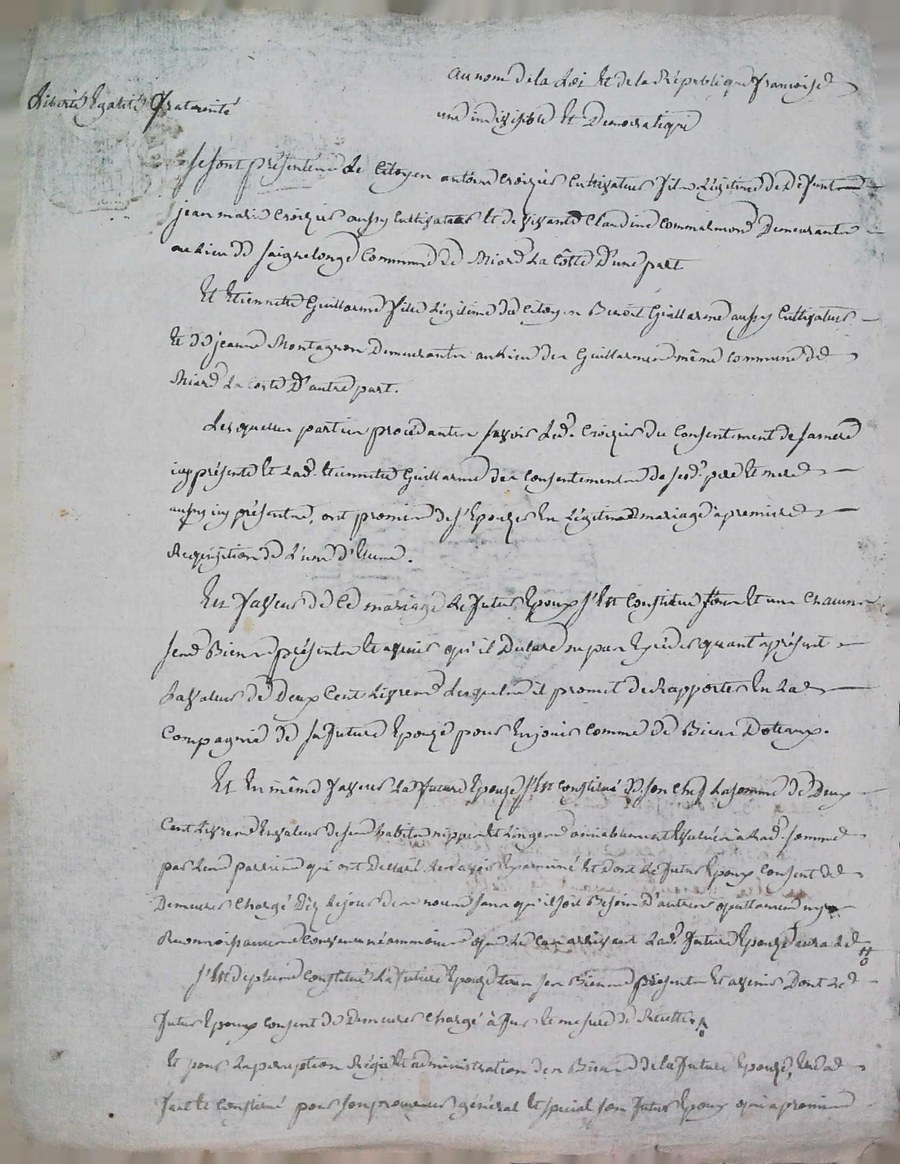 au nom de la Loi et de la République françoise
Liberté Egalité fraternité
une indivisible et Democratique
se sont présentés le Citoyen antoine Croizier Cultivateur fils Légitime de Défunt
jean marie Croizier aussy Cultivateur et de vivante Claudine Commarmond Demeurants
au Lieu de saignelonge Commune de La Côtte D'une part
Et Etiennette Guillarme fille Légitime du Citoyen Benoît Guillarme aussy Cultivateur
et de jeanne Montagnon Demeurants au Lieu des Guillarmes même commune de
La Coste D'autre part.
Lesquelles parties procédantes savoir Led. Croizier du Consentement de sa mere
icy présente et Lad. Etiennette Guillarme des Consentements de sesd. pere et mere
aussy icy présents, ont promis de s'Epouzer En Légitime mariage à premiere
Requizition de L'un d'Eux.
En faveur de Ce mariage Le futur Epoux s'Est Constitué tous et un Chacuns
ses Biens présents et avenir qu'il Déclare ne pas Excéder quant àprésent
La valeur de Deux Cent Livres Lesquels il promet de Rapporter En La
Compagnie de sa future Epouze pour En jouir Comme de Biens Dotaux.
Et En même faveur La future Epouze s'Est Constitué De son Chef La somme de Deux
Cent Livres En valeur de ses habits nippes et Linges amiablement Evalués à Lad. somme
par Les parties qui ont Déclaré Les avoir Examiné Et Dont Le futur Epoux Consent de
Demeurer Chargé Dèz Lejour de nos noces sans qu'il soit Besoin D'autres quittances ny
Reconnoissances convenu néammoins que Le Cas arrivant Lad. future Epouze aura Le
s'Est de plus Constitué La future Epouze tous ses Biens présents Et avenir Dont Le
futur Epoux Consent de Demeurer Chargé à fur et mesure de Recette
Et pour La perception Régie et administration des Biens de la future Epouze, Elle a
fait et Constitué pour son procureur général et spécial son futur Epoux qui a promis